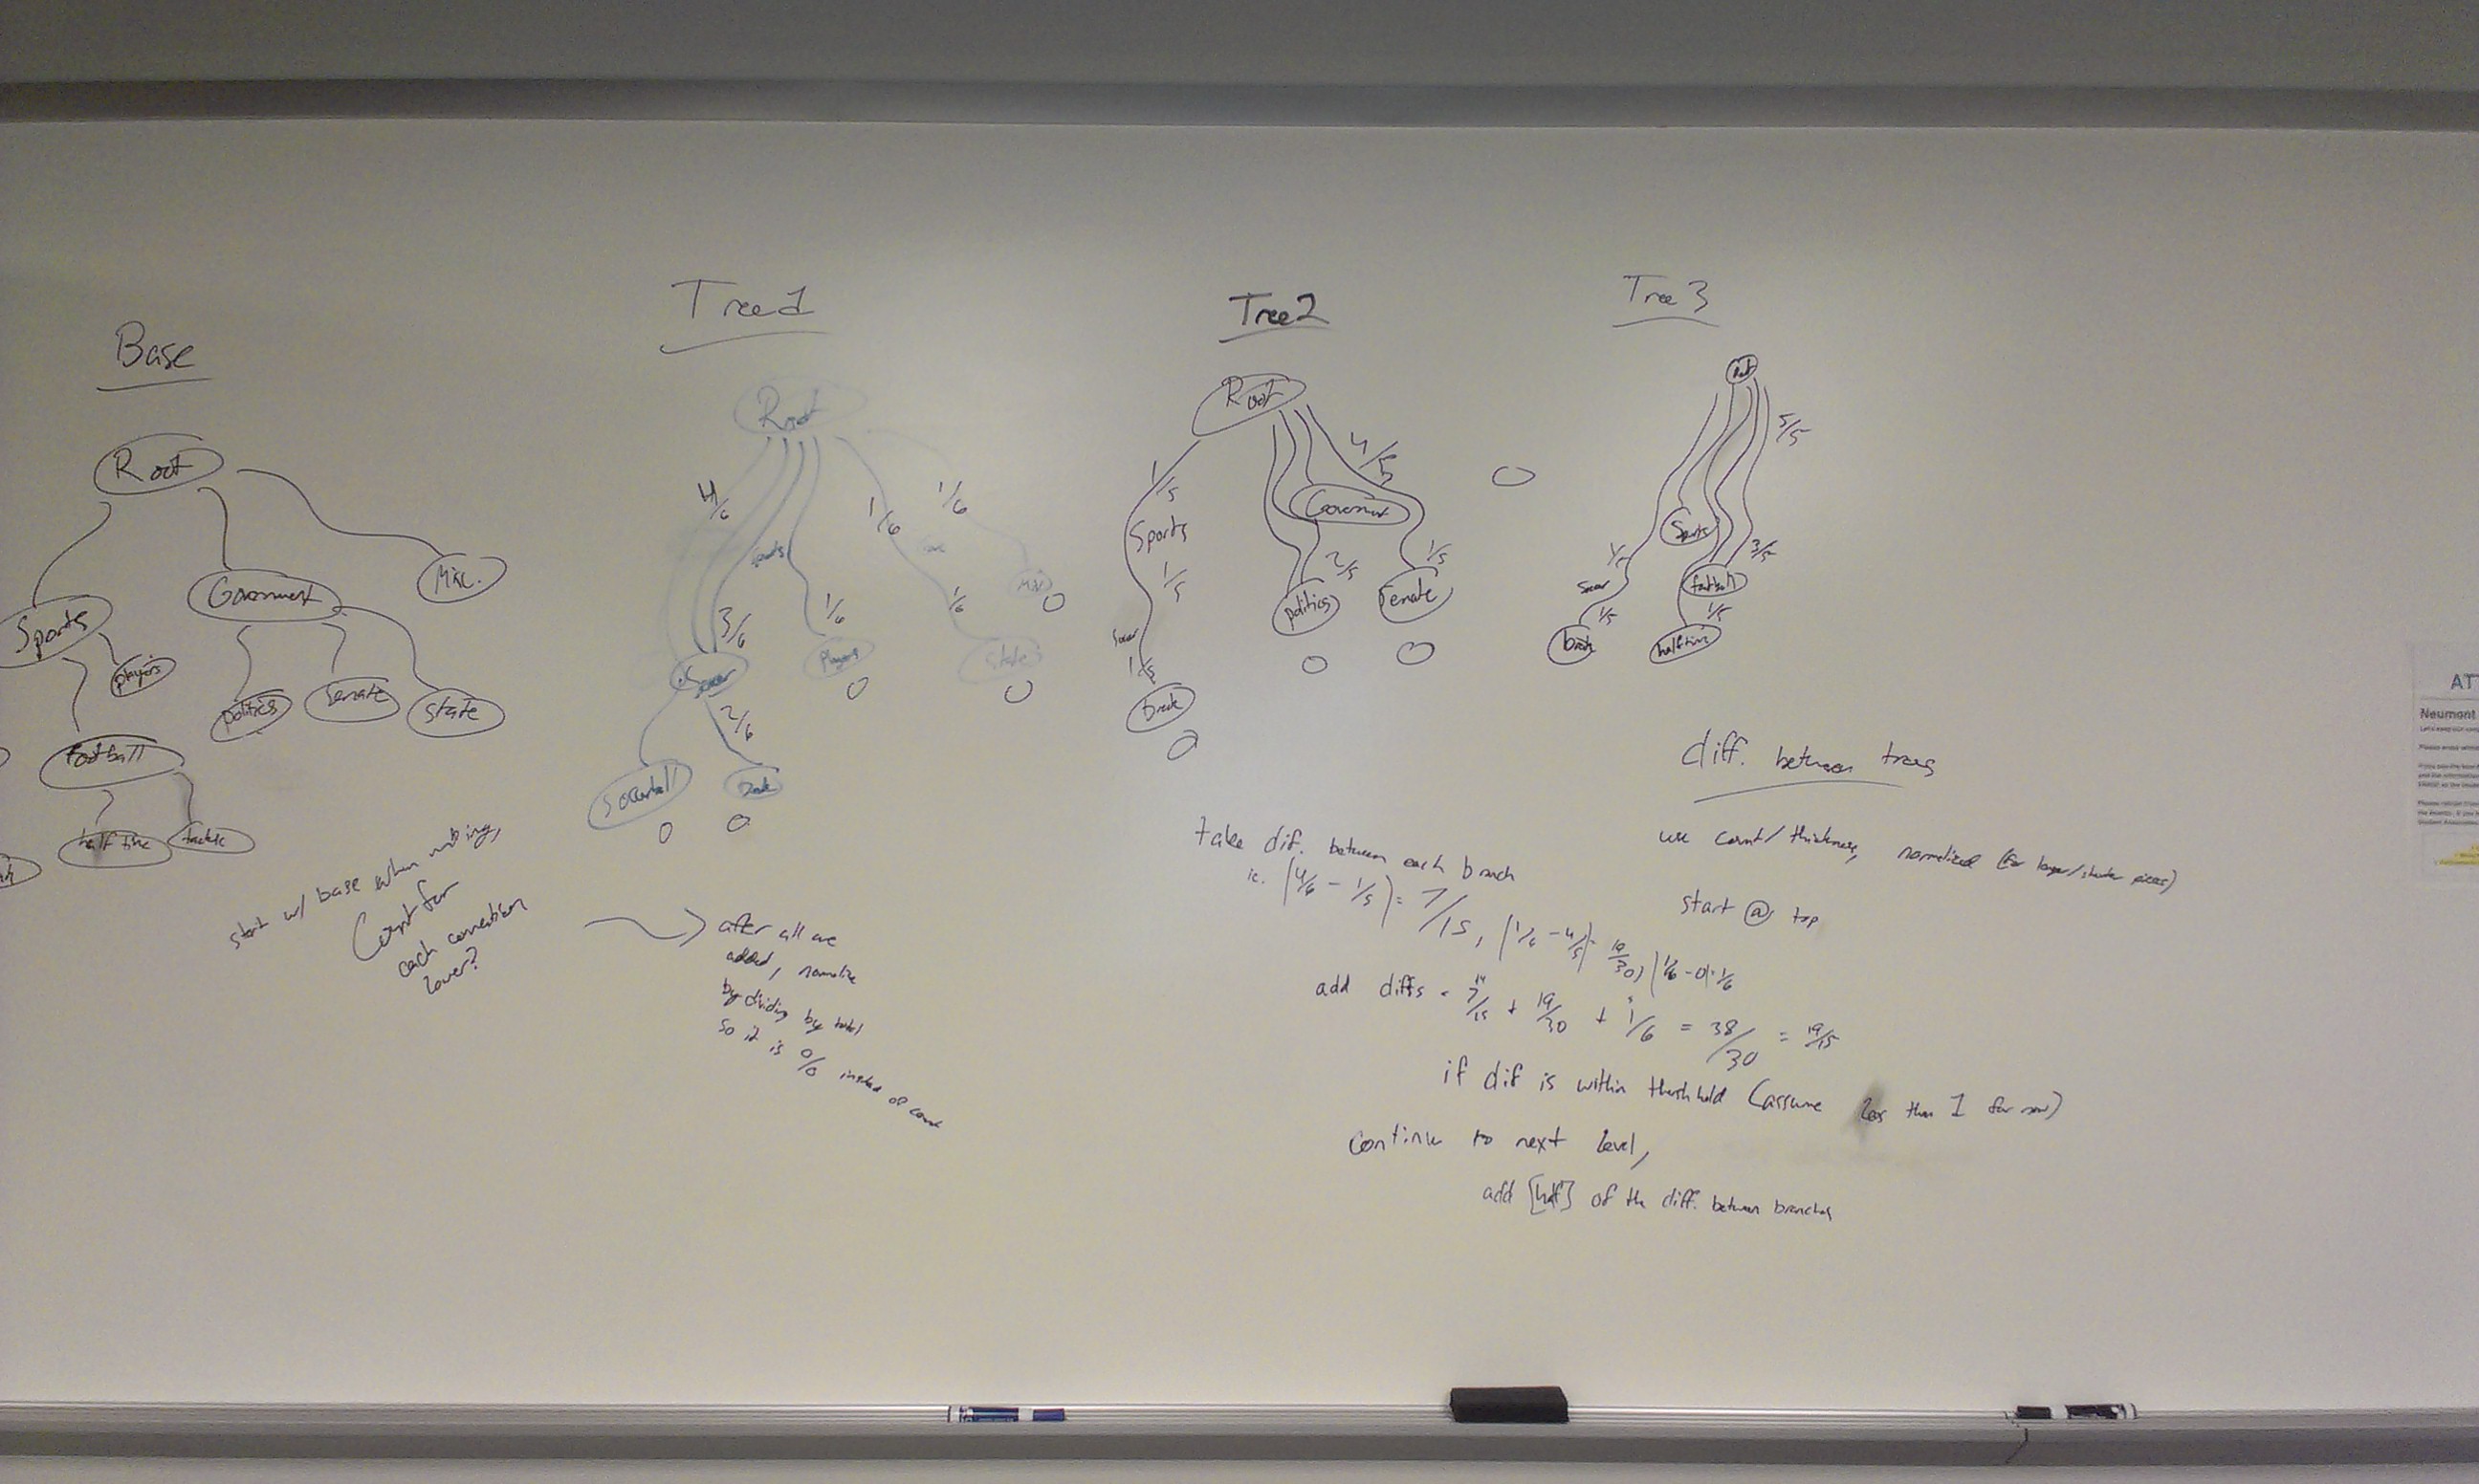 Base
Root
Sports
Government
Misc.
players
politics
Senate
state
Football
half time
tackle
start w/ base when making,
Count for
each connection
lower?
Tree 1
Root
4/6
1/6
1/6
sports
3/6
1/6
1/6
Misc
Soccer
players
state
2/6
Soccerball
after all are
added, normalize
by dividing by total
so it is % instead of count
Tree 2
Root
1/5
4/5
Sports
Government
1/5
2/5
1/5
politics
Senate
Soccer
1/5
Tree 3
Root
5/5
Sports
1/5
3/5
Soccer
football
1/5
1/5
halftime
diff. between trees
use count/thickness, normalized (for longer/shorter pieces)
start @ top
take dif. between each branch
ie. |4/6 - 1/5| = 7/15, |1/6 - 4/5| = 19/30, |1/6 - 0| = 1/6
add diffs = 7/15 + 19/30 + 1/6 = 38/30 = 19/15
if dif is within threshhold (assume less than 1 for now)
Continue to next level,
add [half] of the diff. between branches
AT
Neumont